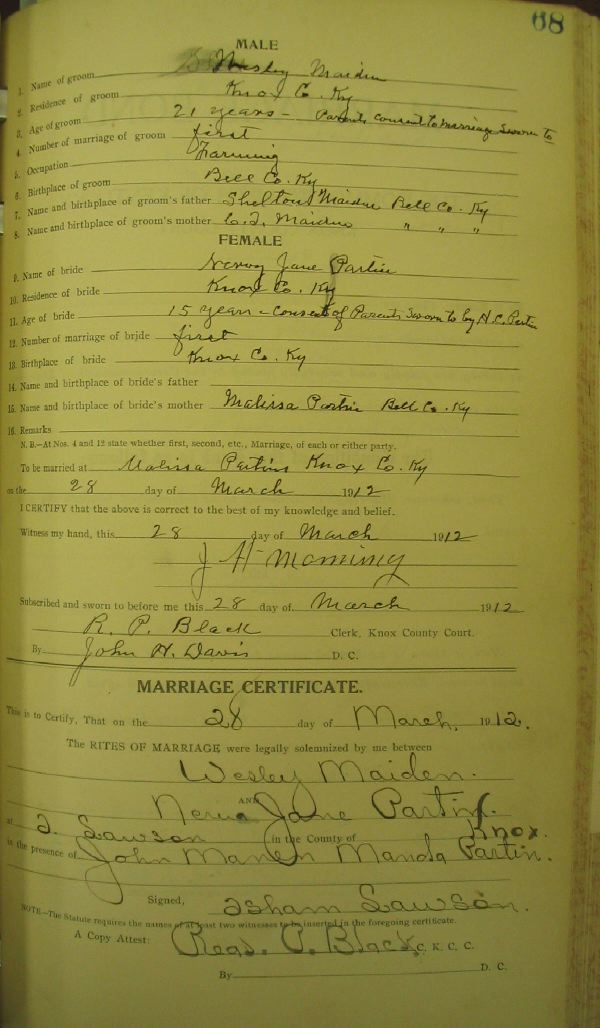 68
MALE
1. Name of groom Wesley Maiden
2. Residence of groom Knox Co. Ky
3. Age of groom 21 years - Parents consent to marriage sworn to
4. Number of marriage of groom first
5. Occupation Farming
6. Birthplace of groom Bell Co. Ky
7. Name and birthplace of groom's father Shelton Maiden Bell Co. Ky
8. Name and birthplace of groom's mother Maiden " " "
FEMALE
9. Name of bride Jane Partin
10. Residence of bride Knox Co. Ky
11. Age of bride 15 years - Consent of Parents Sworn to by H.C. Partin
12. Number of marriage of bride first
13. Birthplace of bride Knox Co. Ky
14. Name and birthplace of bride's father
15. Name and birthplace of bride's mother Malissa Partin Bell Co. Ky
16. Remarks
N. B.—At Nos. 4 and 12 state whether first, second, etc., Marriage, of each or either party.
To be married at Malissa Partins Knox Co. Ky
on the 28 day of March 1912
I CERTIFY that the above is correct to the best of my knowledge and belief.
Witness my hand, this 28 day of March 1912
J H
Subscribed and sworn to before me this 28 day of March 1912
R. P. Black Clerk, Knox County Court.
By John H. Davis D. C.
MARRIAGE CERTIFICATE.
This is to Certify, That on the 28 day of March, 1912.
The RITES OF MARRIAGE were legally solemnized by me between
Wesley Maiden.
AND
Jane Partin
at Lawson in the County of Knox.
in the presence of John Manda Partin.
Signed, Isham Lawson.
NOTE—The Statute requires the names of at least two witnesses to be inserted in the foregoing certificate.
A Copy Attest: P. Black, C. K. C. C.
By D. C.